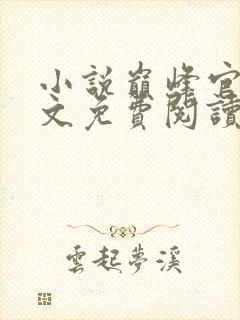 小說巔峰官
文免費閱讀
雲起夢溪